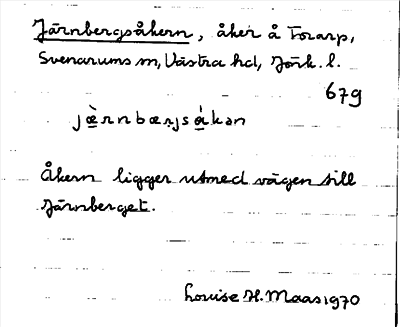 Järnbergsåkern, åker å Torarp,
Svenarums sn, Västra hd, Jönk. l.
679
jæ̀rnbærjsǻkən
Åkern ligger utmed vägen till
Järnberget.
Louise H. Maas 1970